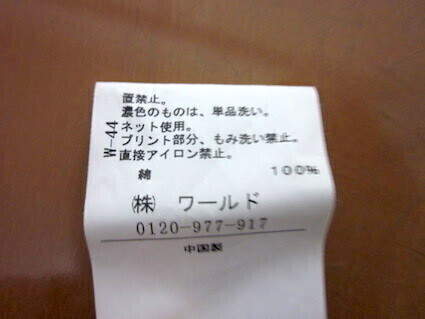 置禁止。
濃色のものは、単品洗い。
ネット使用。
プリント部分、もみ洗い禁止。
直接アイロン禁止。
W-44
綿 100%
㈱ ワールド
0120-977-917
中国製